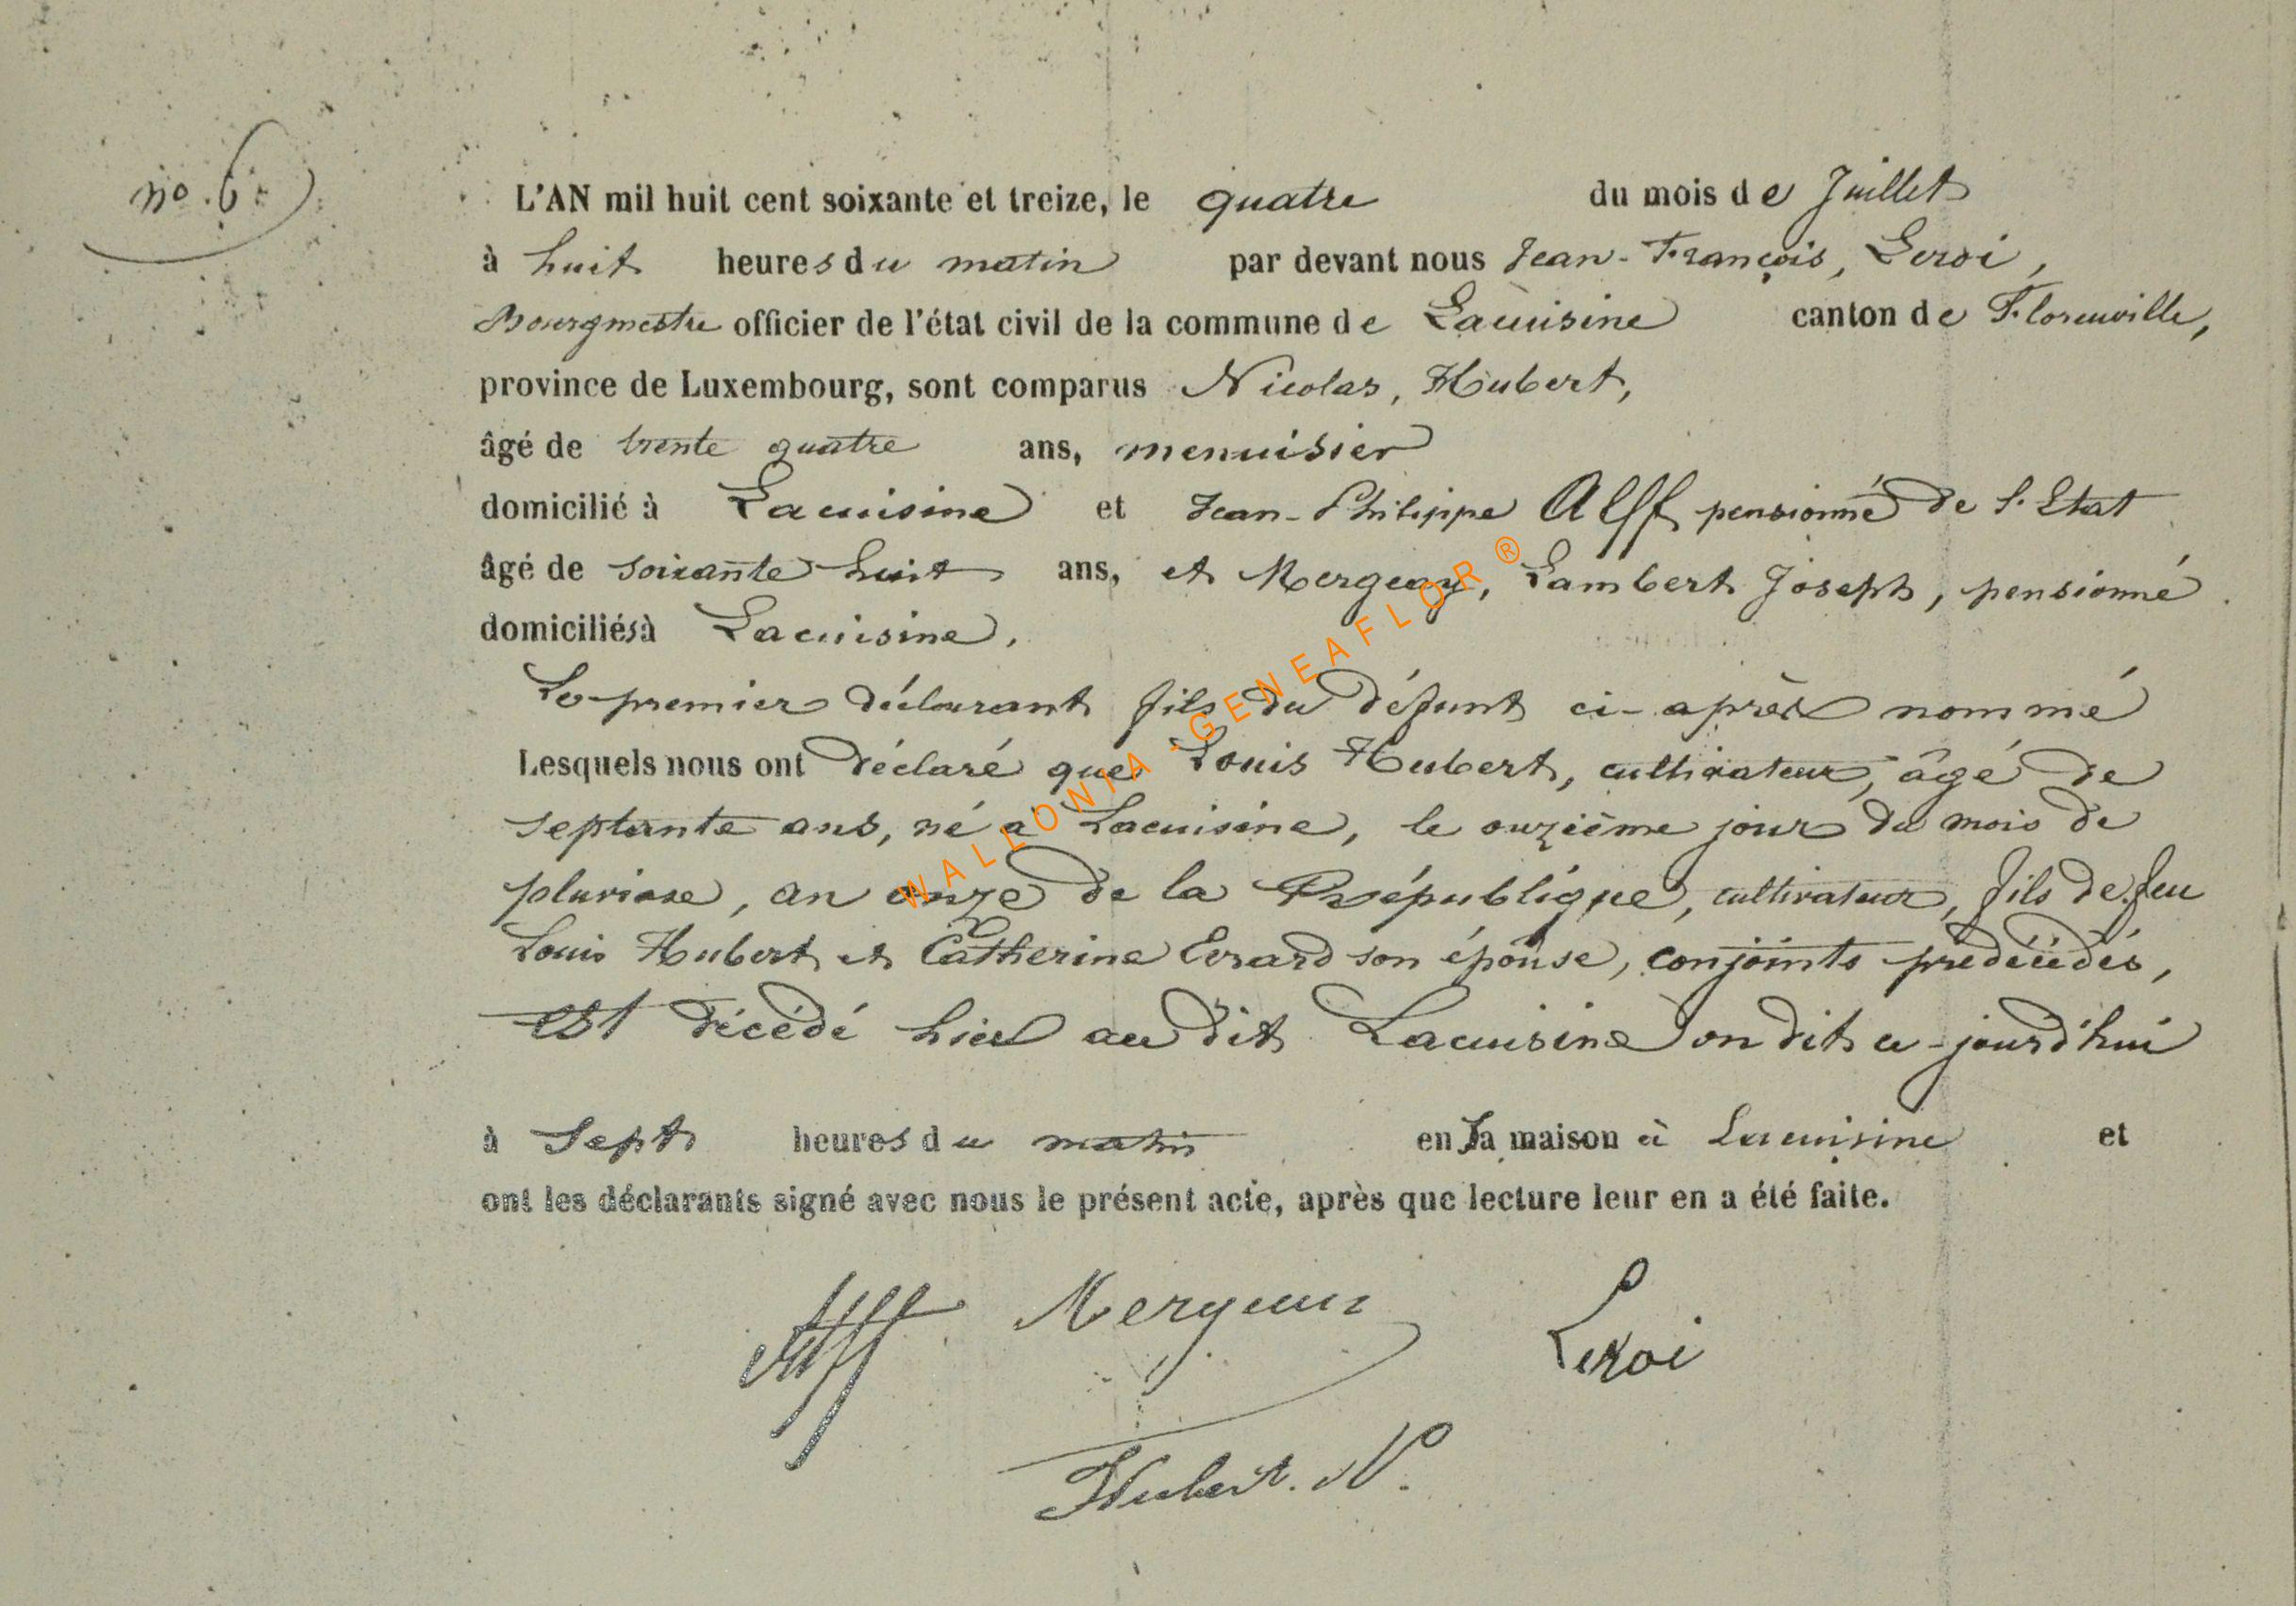 no. 6.
L'AN mil huit cent soixante et treize, le quatre du mois de Juillet
à huit heures du matin par devant nous Jean-François, Leroi,
Bourgmestre officier de l'état civil de la commune de Lacuisine canton de Florenville,
province de Luxembourg, sont comparus Nicolas, Hubert,
âgé de trente quatre ans, menuisier
domicilié à Lacuisine et Jean-Philippe Alff pensionné de l'Etat
âgé de soixante huit ans, et Mergeay, Lambert Joseph, pensionné
domiciliés à Lacuisine.
Le premier déclarant fils du défunt ci-après nommé
Lesquels nous ont déclaré que Louis Hubert, cultivateur, âgé de
septante ans, né à Lacuisine, le onzième jour du mois de
pluviose, an onze de la République, cultivateur, fils de feu
Louis Hubert et Catherine Evrard son épouse, conjoints prédécédés,
est décédé hier au dit Lacuisine on dit ce-jourd'hui
à sept heures du matin en sa maison à Lacuisine et
ont les déclarants signé avec nous le présent acte, après que lecture leur en a été faite.
Alff Mergeay Leroi
Hubert. N.
WALLONIA-GENEAFLOR ®